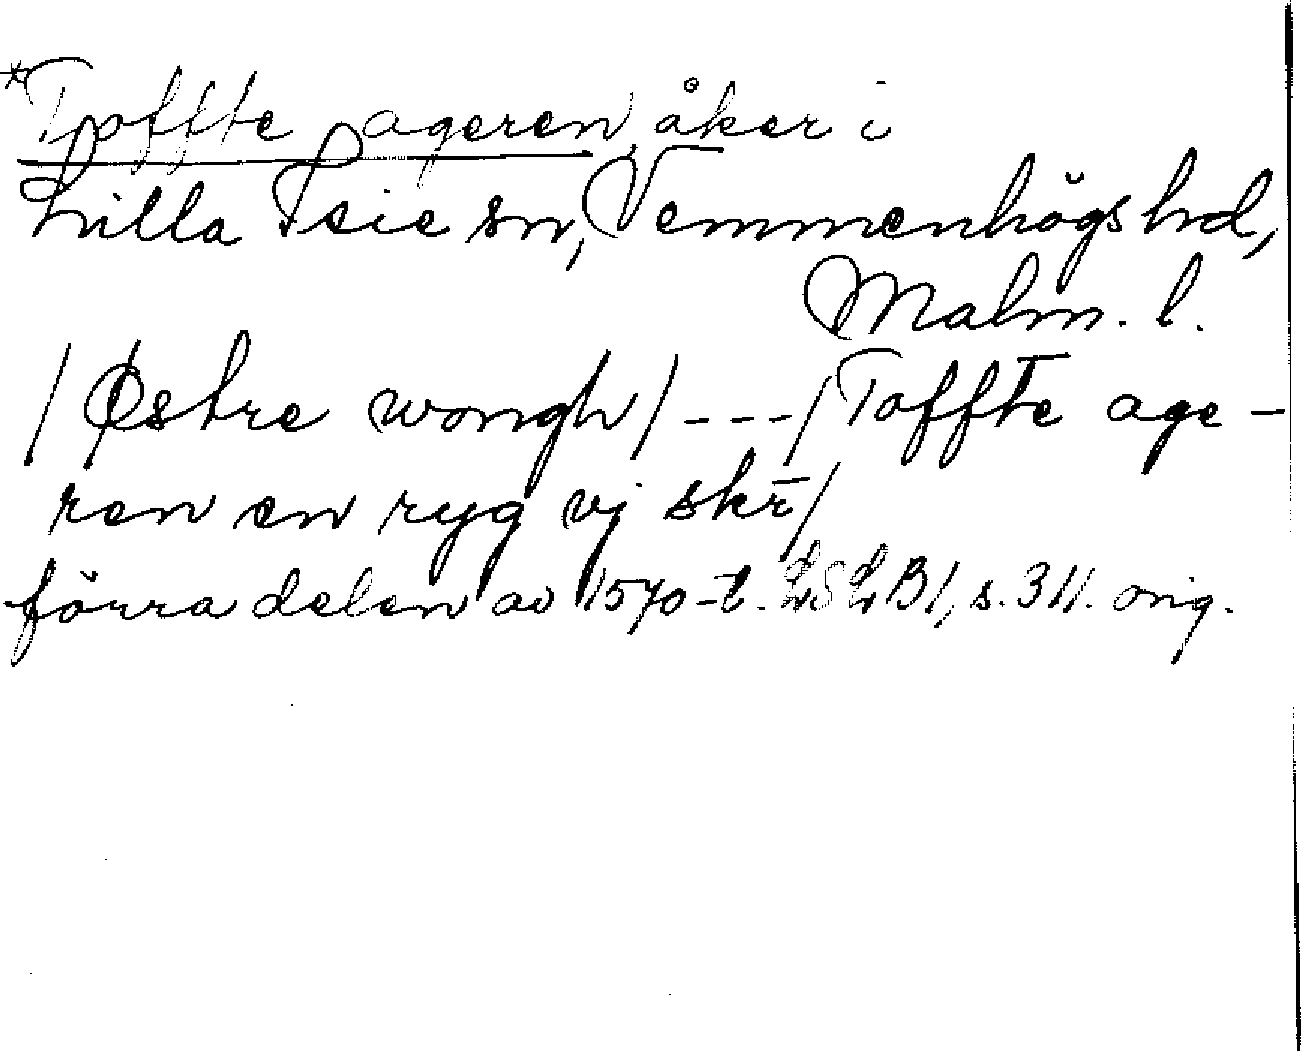 *Toffte ageren, åker i
Lilla Isie sn, Vemmenhögs hd,
Malm. l.
/Østre wongh/---/Toffte age-
ren en ryg vj skr̄/
förra delen av 1570-t. LSLB1, s. 311. orig.